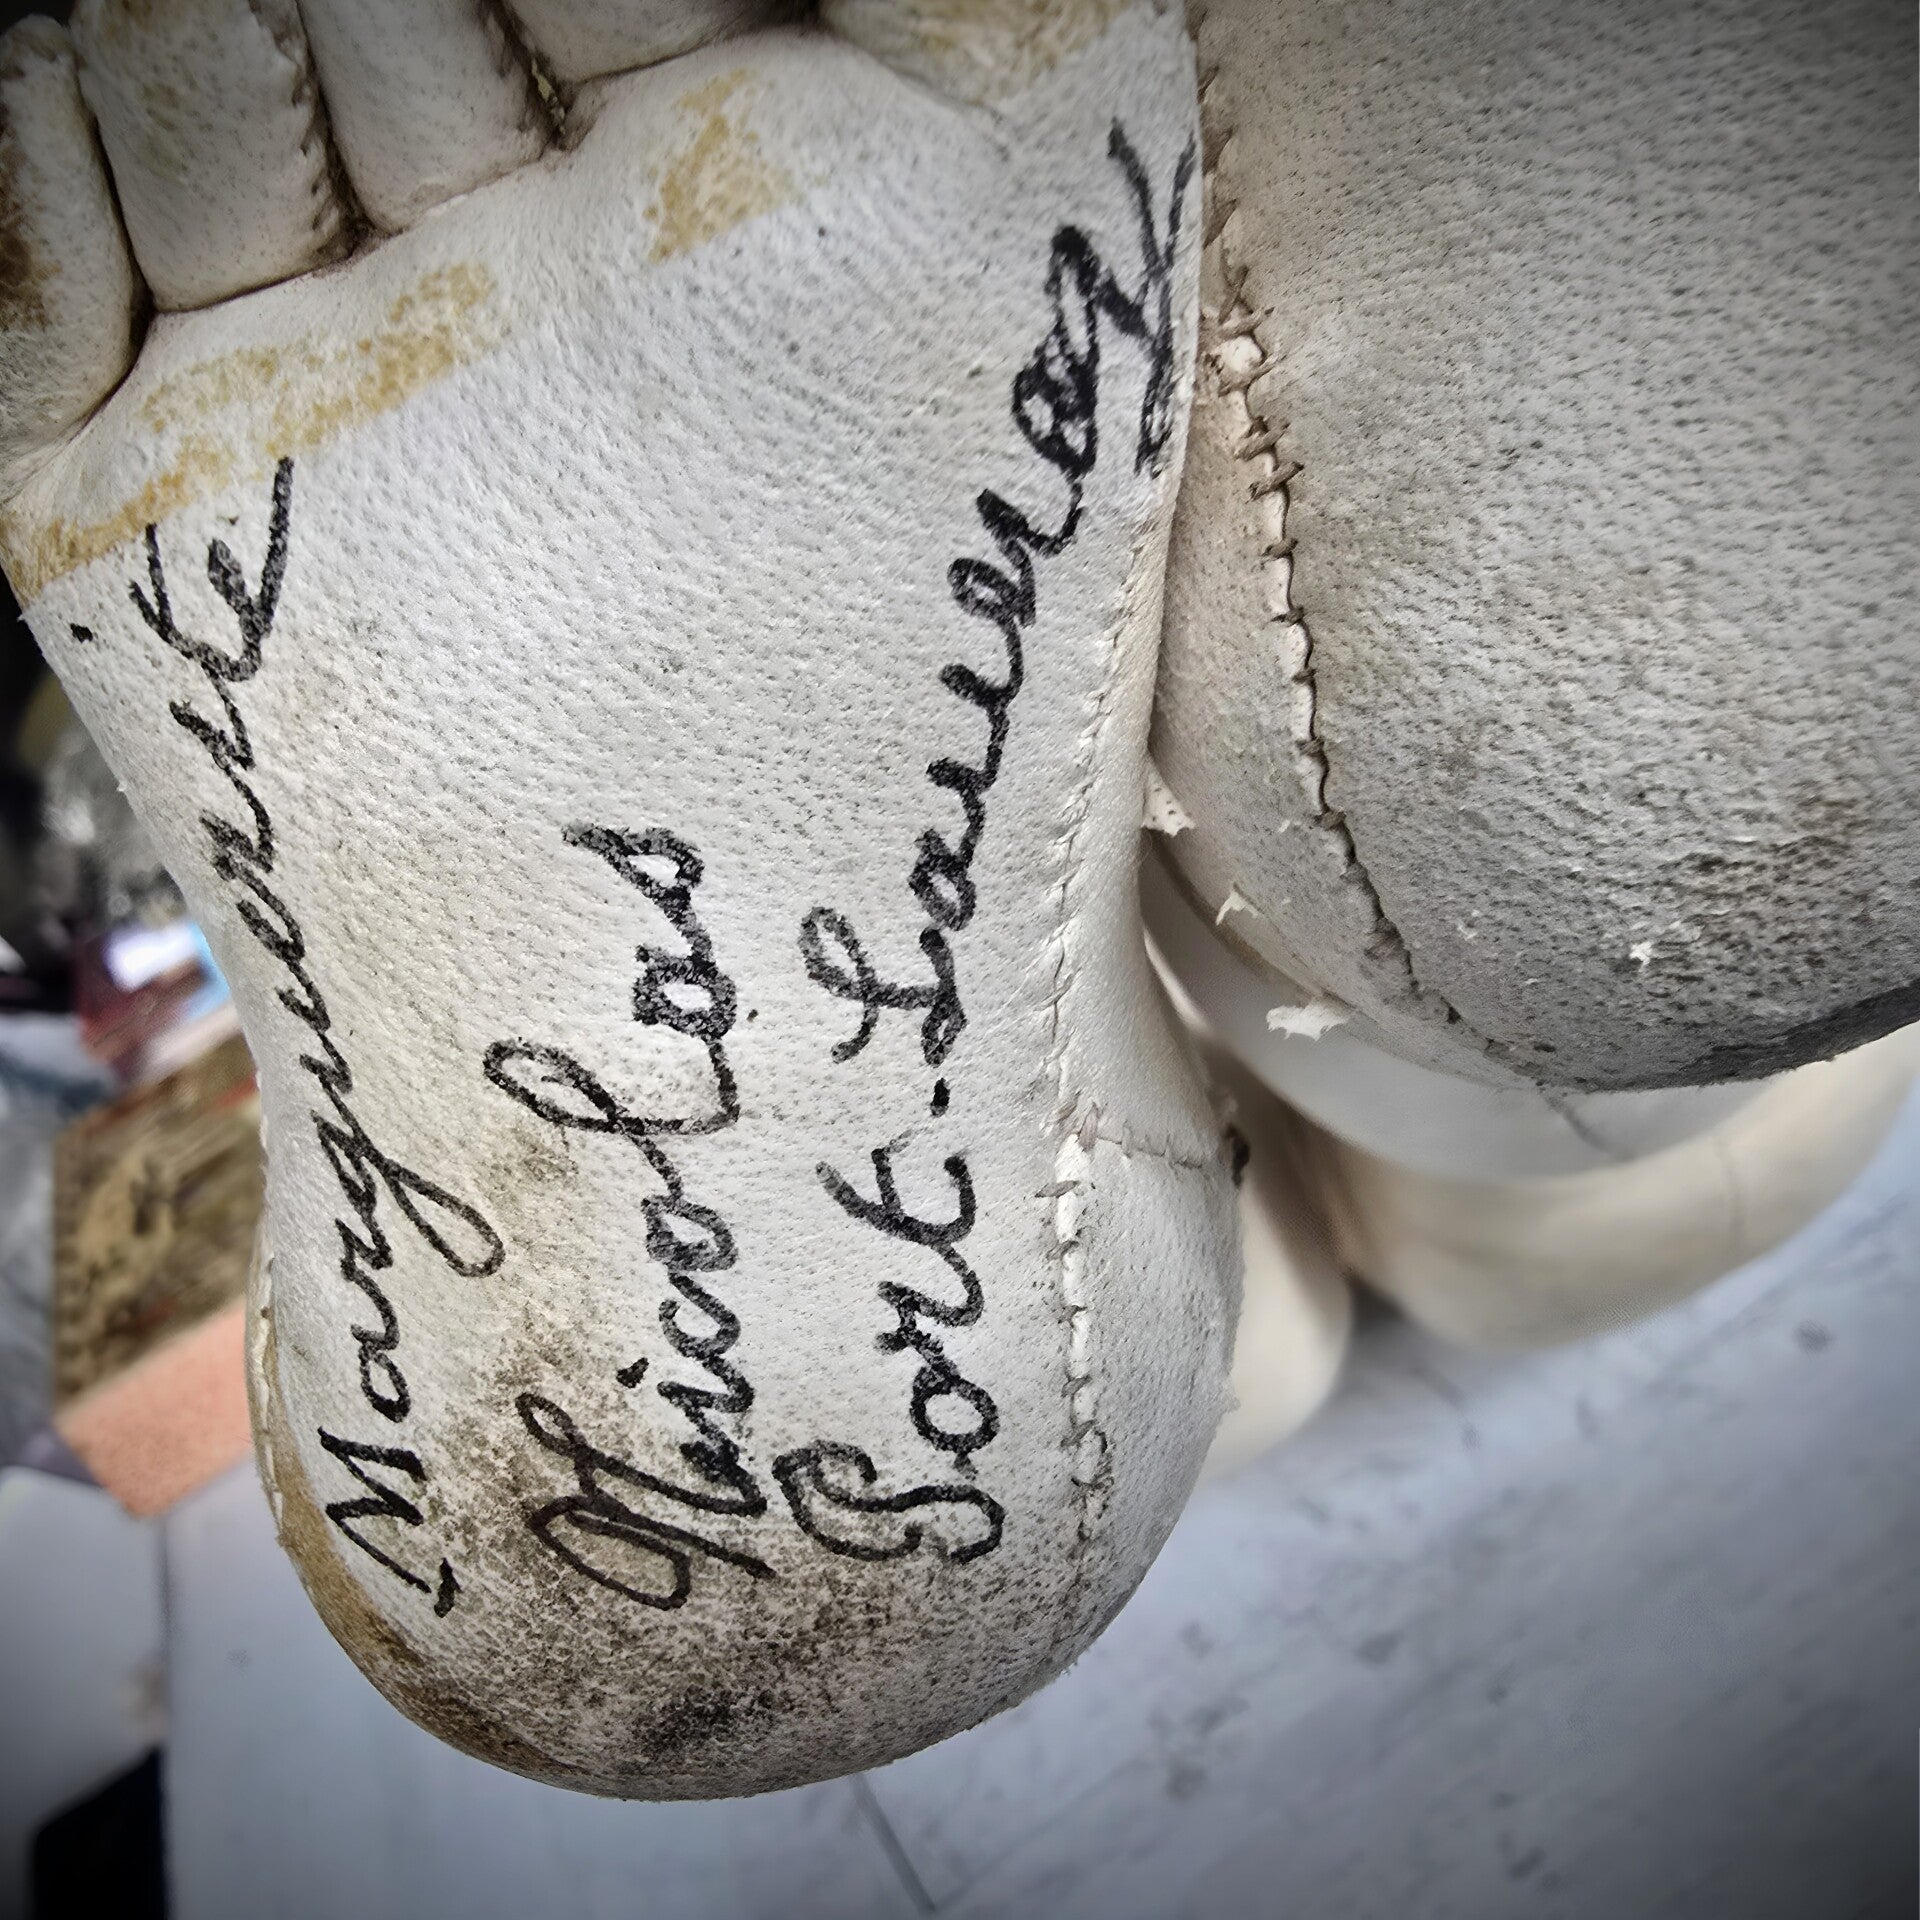 Marguerite
Nicolas
Port-Launay